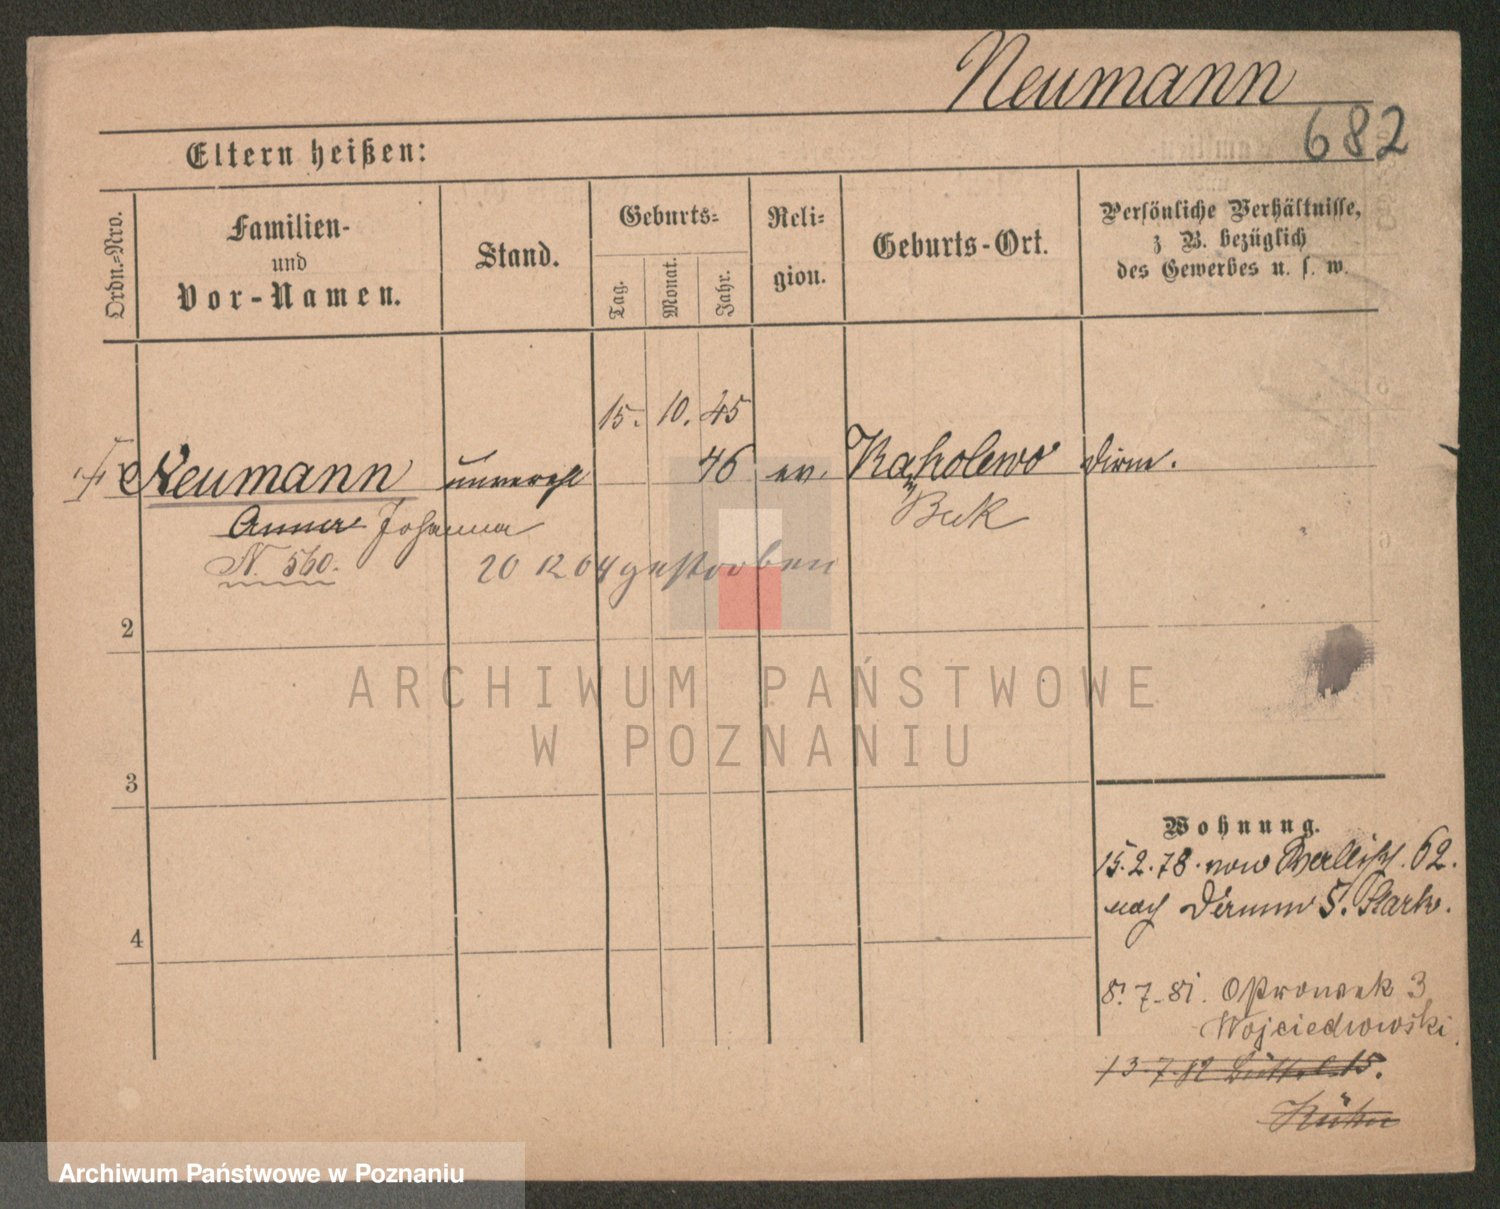 Neumann
682
Eltern heißen:
Ordn.-Nro.
Familien-
und
Vor-Namen.
Stand.
Geburts-
Tag.
Monat.
Jahr.
Reli-
gion.
Geburts-Ort.
Persönliche Verhältnisse,
z B. bezüglich
des Gewerbes u. s. w.
15. 10. 45
Neumann unverehl 46 ev. Kąkolewo Dirne.
Anna Johanna Buk
N. 560.
20 12 04 gestorben
2
3
4
Wohnung.
15.2.78. von 62.
nach 5. Stark.
8.7.81. Ostrowek 3
Wojciechowski
13.7.82 15.
Kühn
ARCHIWUM PAŃSTWOWE
W POZNANIU
Archiwum Państwowe w Poznaniu